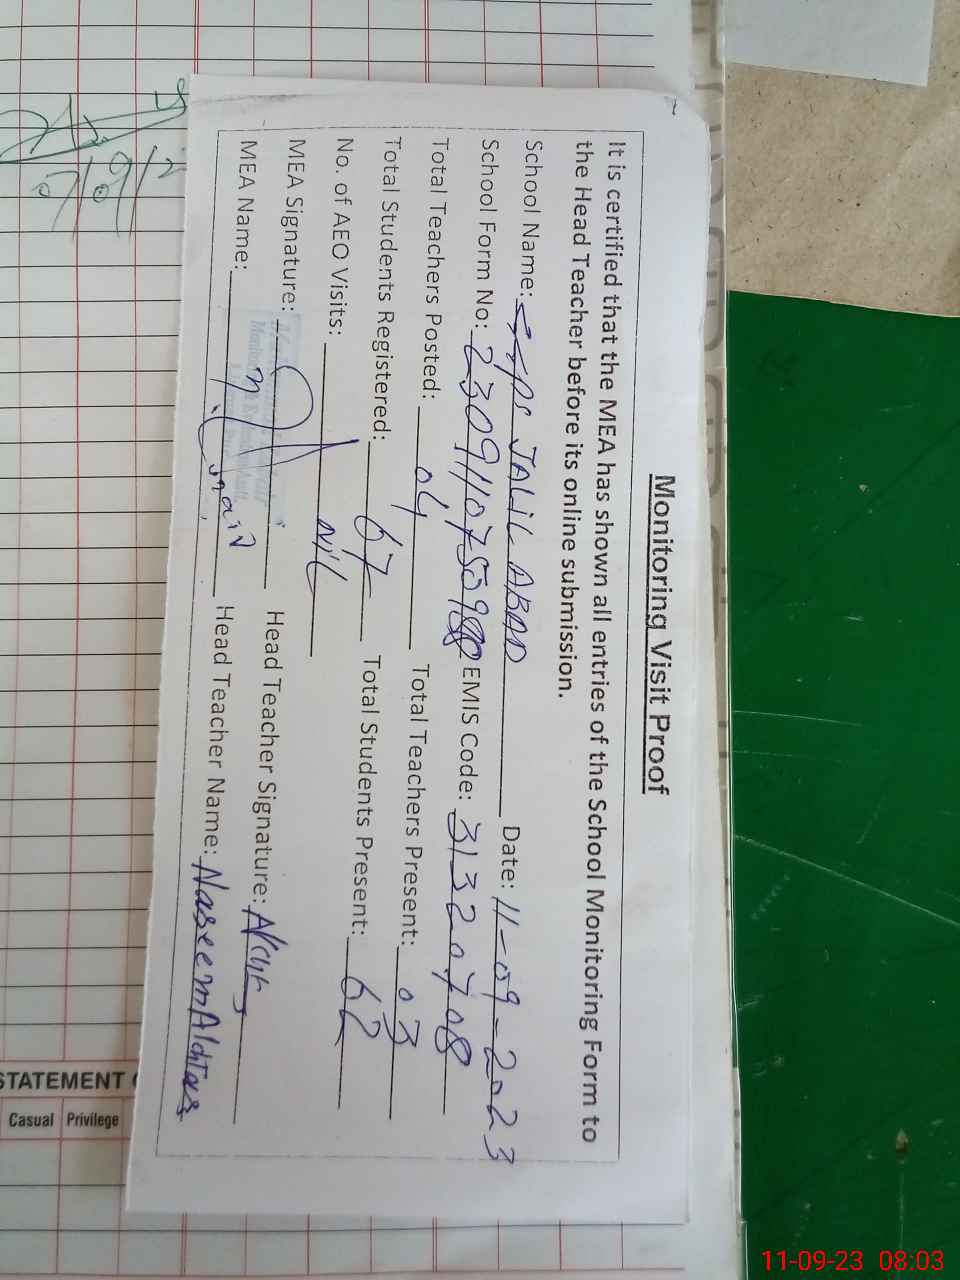 Monitoring Visit Proof
It is certified that the MEA has shown all entries of the School Monitoring Form to
the Head Teacher before its online submission.
School Name: GGPS JALIL ABAD Date: 11-09-2023
School Form No: EMIS Code: 31320708
Total Teachers Posted: 04 Total Teachers Present: 03
Total Students Registered: 67 Total Students Present: 62
No. of AEO Visits: NIL
MEA Signature: Head Teacher Signature:
MEA Name: Head Teacher Name: Naseem Akhtar
STATEMENT
Casual Privilege
11-09-23 08:03